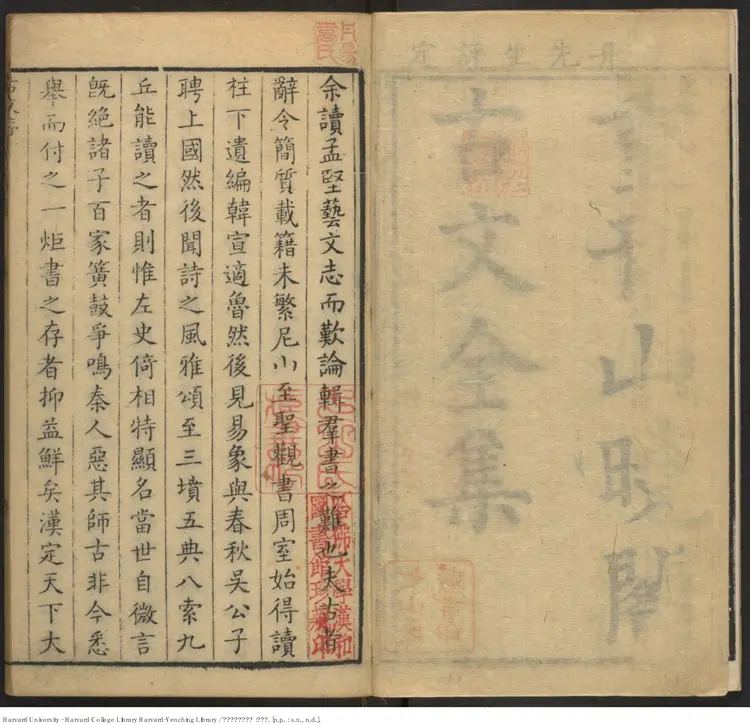 余讀孟堅藝文志而歎論輯羣書之難也夫古者
辭令簡質載籍未繁尼山至聖觀書周室始得讀
柱下遺編韓宣適魯然後見易象與春秋吳公子
聘上國然後聞詩之風雅頌至三墳五典八索九
丘能讀之者則惟左史倚相特顯名當世自微言
旣絕諸子百家簧鼓爭鳴秦人惡其師古非今悉
舉而付之一炬書之存者抑益鮮矣漢定天下大
哈佛大學漢和
圖書館珍藏印
先生評定
古文全集
Harvard University - Harvard College Library Harvard-Yenching Library / ???????? :???. [n.p. : s.n., n.d.].